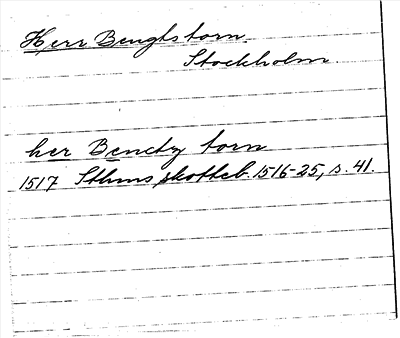 Herr Bengts torn
Stockholm.
her Benctz torn
1517 Sthms skotteb. 1516-25, s. 41.